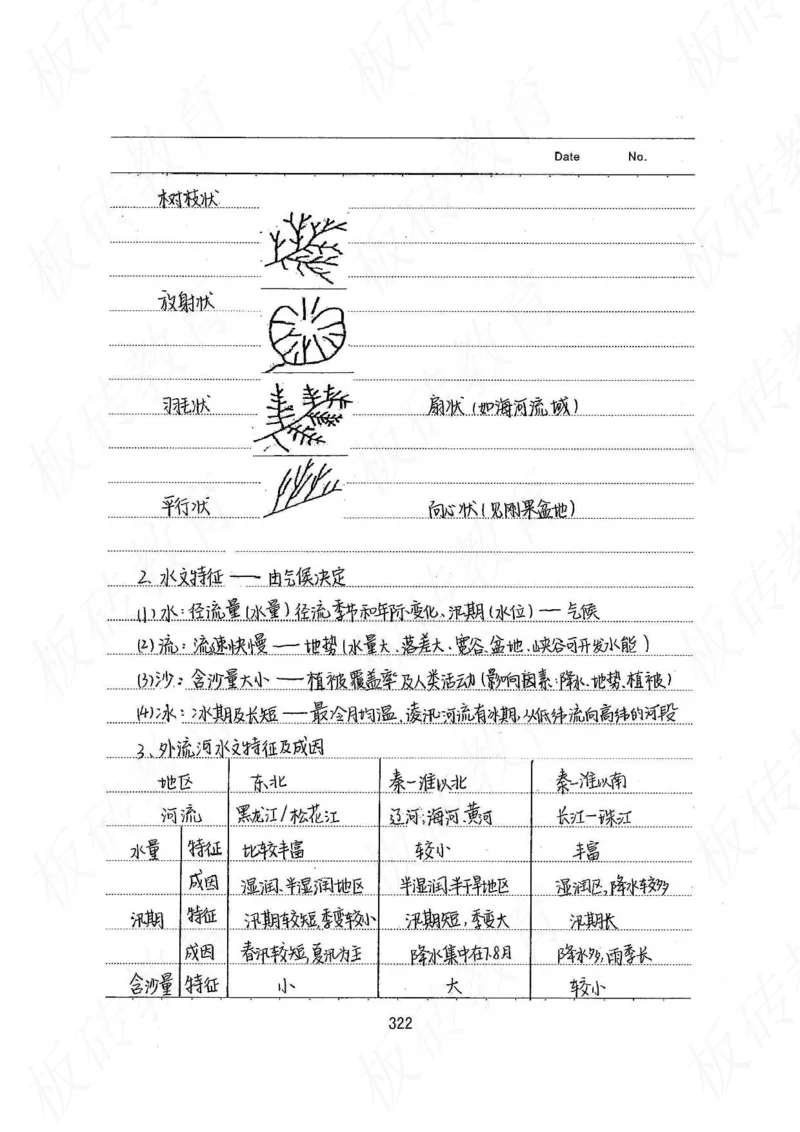 Date No.
树枝状
放射状
羽毛状 扇状(如海河流域)
平行状 向心状(见刚果盆地)
2、水文特征——由气候决定
(1)水:径流量(水量)径流季节和年际变化、汛期(水位)——气候
(2)流:流速快慢——地势(水量大、落差大、宽谷、盆地、峡谷可开发水能)
(3)沙:含沙量大小——植被覆盖率及人类活动(影响因素:降水、地势、植被)
(4)冰:冰期及长短——最冷月均温,凌汛河流有冰期,从低纬流向高纬的河段
3、外流河水文特征及成因
地区 东北 秦—淮以北 秦—淮以南
河流 黑龙江/松花江 辽河;海河、黄河 长江—珠江
水量 特征 比较丰富 较小 丰富
成因 湿润、半湿润地区 半湿润、半干旱地区 湿润区,降水较多
汛期 特征 汛期较短,季变较小 汛期短,季变大 汛期长
成因 春汛较短,夏汛为主 降水集中在7.8月 降水多,雨季长
含沙量 特征 小 大 较小
322
板砖教育